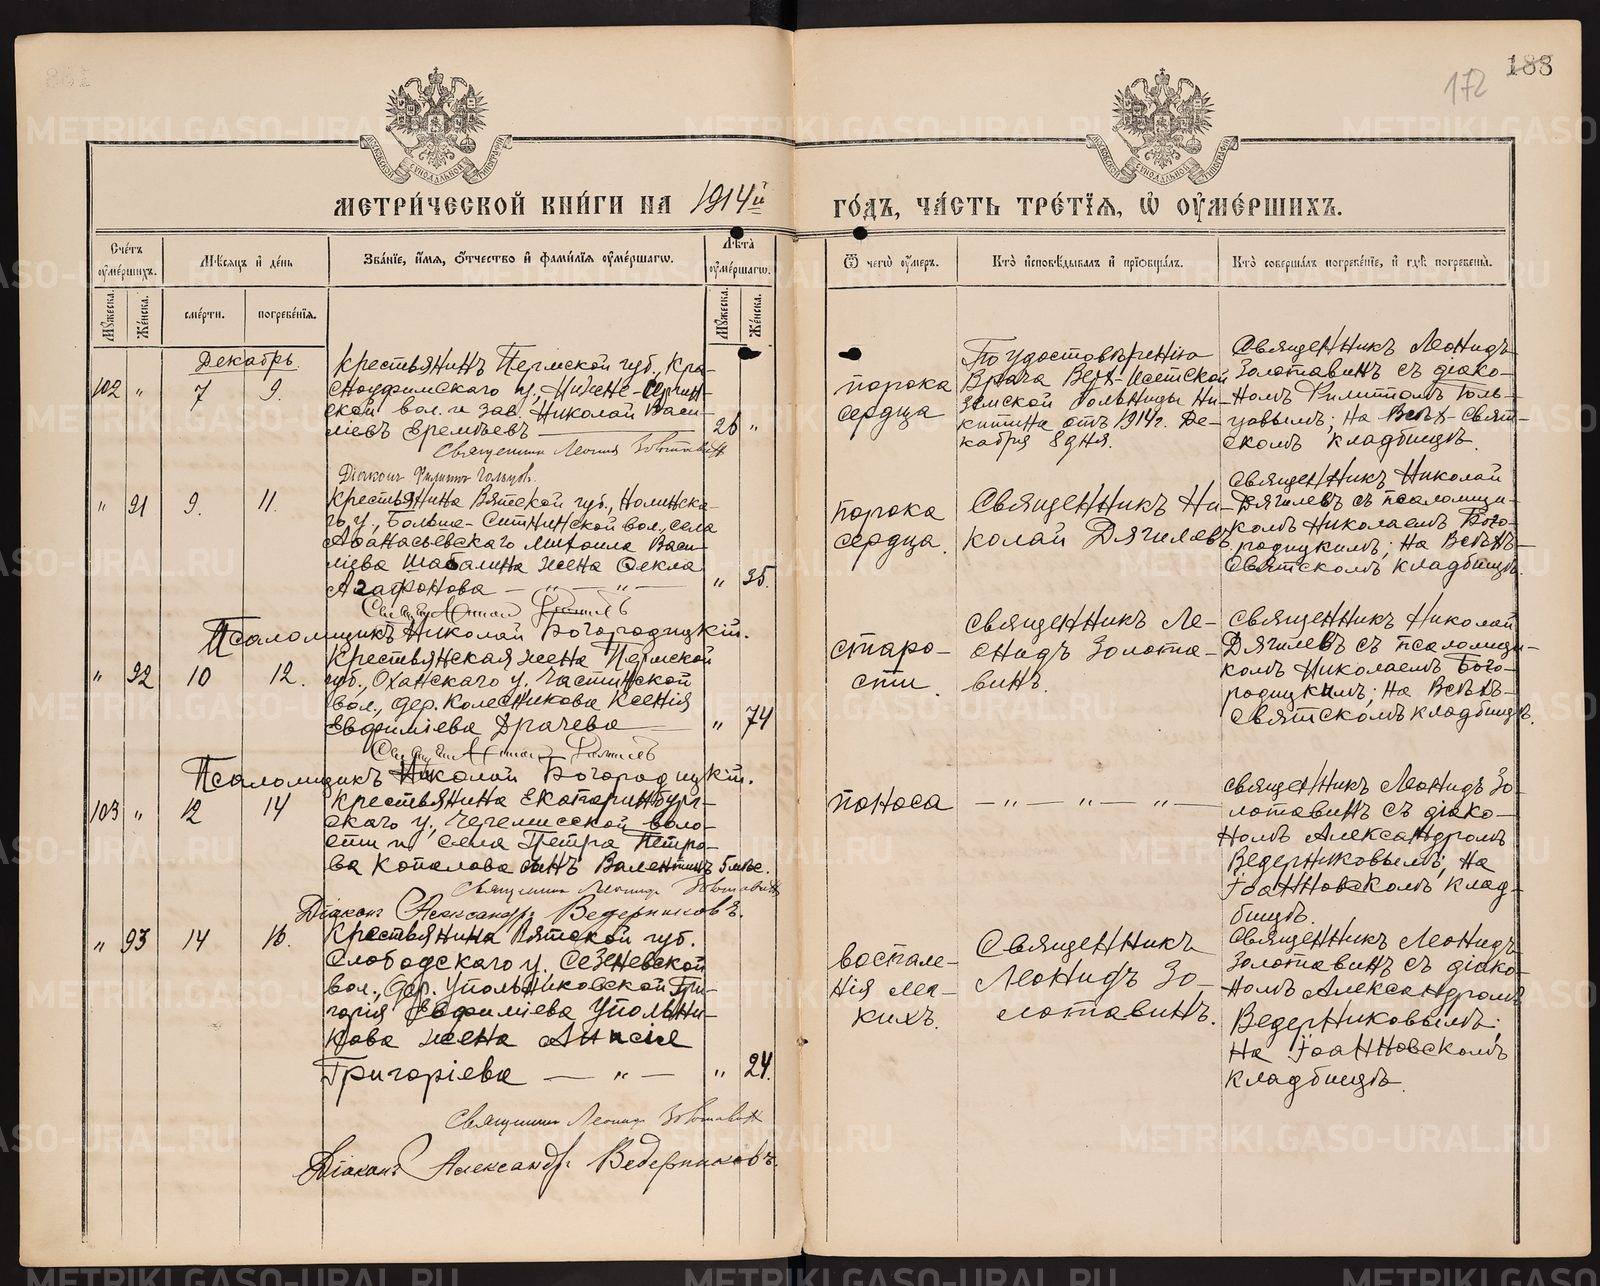 188
172
МЕТРИ́ЧЕСКОЙ КНИ́ГИ НА 1914й
ГО́ДЪ, ЧА́СТЬ ТРЕ́ТЇѦ, Ѡ ОУМЕ́РШИХЪ.
Сче́тъ оумершихъ.
Мѣсяцъ и де́нь
Зва́нїе, и́мя, о́тчество и фамилїя оуме́ршагѡ.
Лѣта оуме́ршагѡ.
Мужеска.
Же́нска.
сме́рти.
погребе́нїя.
Мужеска.
Же́нска.
Ѿ чегѡ оу́меръ.
Кто̀ исповѣ́дывалъ и прїобща́лъ.
Кто̀ соверша́лъ погребе́нїе, и гдѣ̀ погребены̀.
Декабрь
102 " 7 9.
Крестьянинъ Пермской губ., Кра-
сноуфимскаго у., Нижне-Сергин-
ской вол. и зав. Николай Васи-
лiевъ Еремѣевъ 26 "
Священникъ Леонидъ Золотавинъ
Дiаконъ Филиппъ Гольцовъ.
порока
сердца
По удостовѣренiю
Врача Верх-Исетской
Земской больницы Ни-
китина отъ 1914г. Де-
кабря 8 дня.
Священникъ Леонидъ
Золотавинъ съ дiако-
номъ Филиппомъ Голь-
цовымъ; на Всѣх-Свят-
скомъ кладбищѣ.
" 91 9. 11.
Крестьянина Вятской губ., Нолинска-
го у., Больше-Ситнинской вол., села
Аѳанасьевскаго Михаила Васи-
лiева Шабалина жена Ѳекла
Агафонова — " — " — " 35.
Псаломщикъ Николай Богородицкiй.
порока
сердца.
Священникъ Ни-
колай Дягилевъ
Священникъ Николай
Дягилевъ съ псаломщи-
комъ Николаемъ Бого-
родицкимъ; на Всѣхъ-
Святскомъ кладбищѣ.
" 92 10 12.
Крестьянская жена Пермской
губ., Оханскаго у. Частинской
вол., дер. Колесникова Ксенiя
Евфимiева Драчева " 74
Псаломщикъ Николай Богородицкiй.
старо-
сти.
Священникъ Ле-
онидъ Золота-
винъ.
Священникъ Николай
Дягилевъ съ псаломщи-
комъ Николаемъ Бого-
родицкимъ; на Всѣхъ-
Святскомъ кладбищѣ.
103 " 12 14
Крестьянина Екатеринбург-
скаго у., Черемисской воло-
сти и села Петра Петро-
ва Копалова сынъ Валентинъ 5 мѣс.
Священникъ Леонидъ Золотавинъ
Дiаконъ Александръ Ведерниковъ.
поноса
— " — " — " —
Священникъ Леонидъ Зо-
лотавинъ съ дiако-
номъ Александромъ
Ведерниковымъ; на
Iоанновскомъ клад-
бищѣ.
" 93 14 16.
Крестьянина Вятской губ.
Слободскаго у. Сезеневской
вол., дер. Упольниковской Гри-
горiя Евфимiева Упольни-
кова жена Анисiя
Григорiева — " — " 24.
Священникъ Леонидъ Золотавинъ
Дiаконъ Александръ Ведерниковъ.
воспале-
нiя лег-
кихъ.
Священникъ
Леонидъ Зо-
лотавинъ.
Священникъ Леонидъ
Золотавинъ съ дiако-
номъ Александромъ
Ведерниковымъ;
на Iоанновскомъ
кладбищѣ.
METRIKI.GASO-URAL.RU